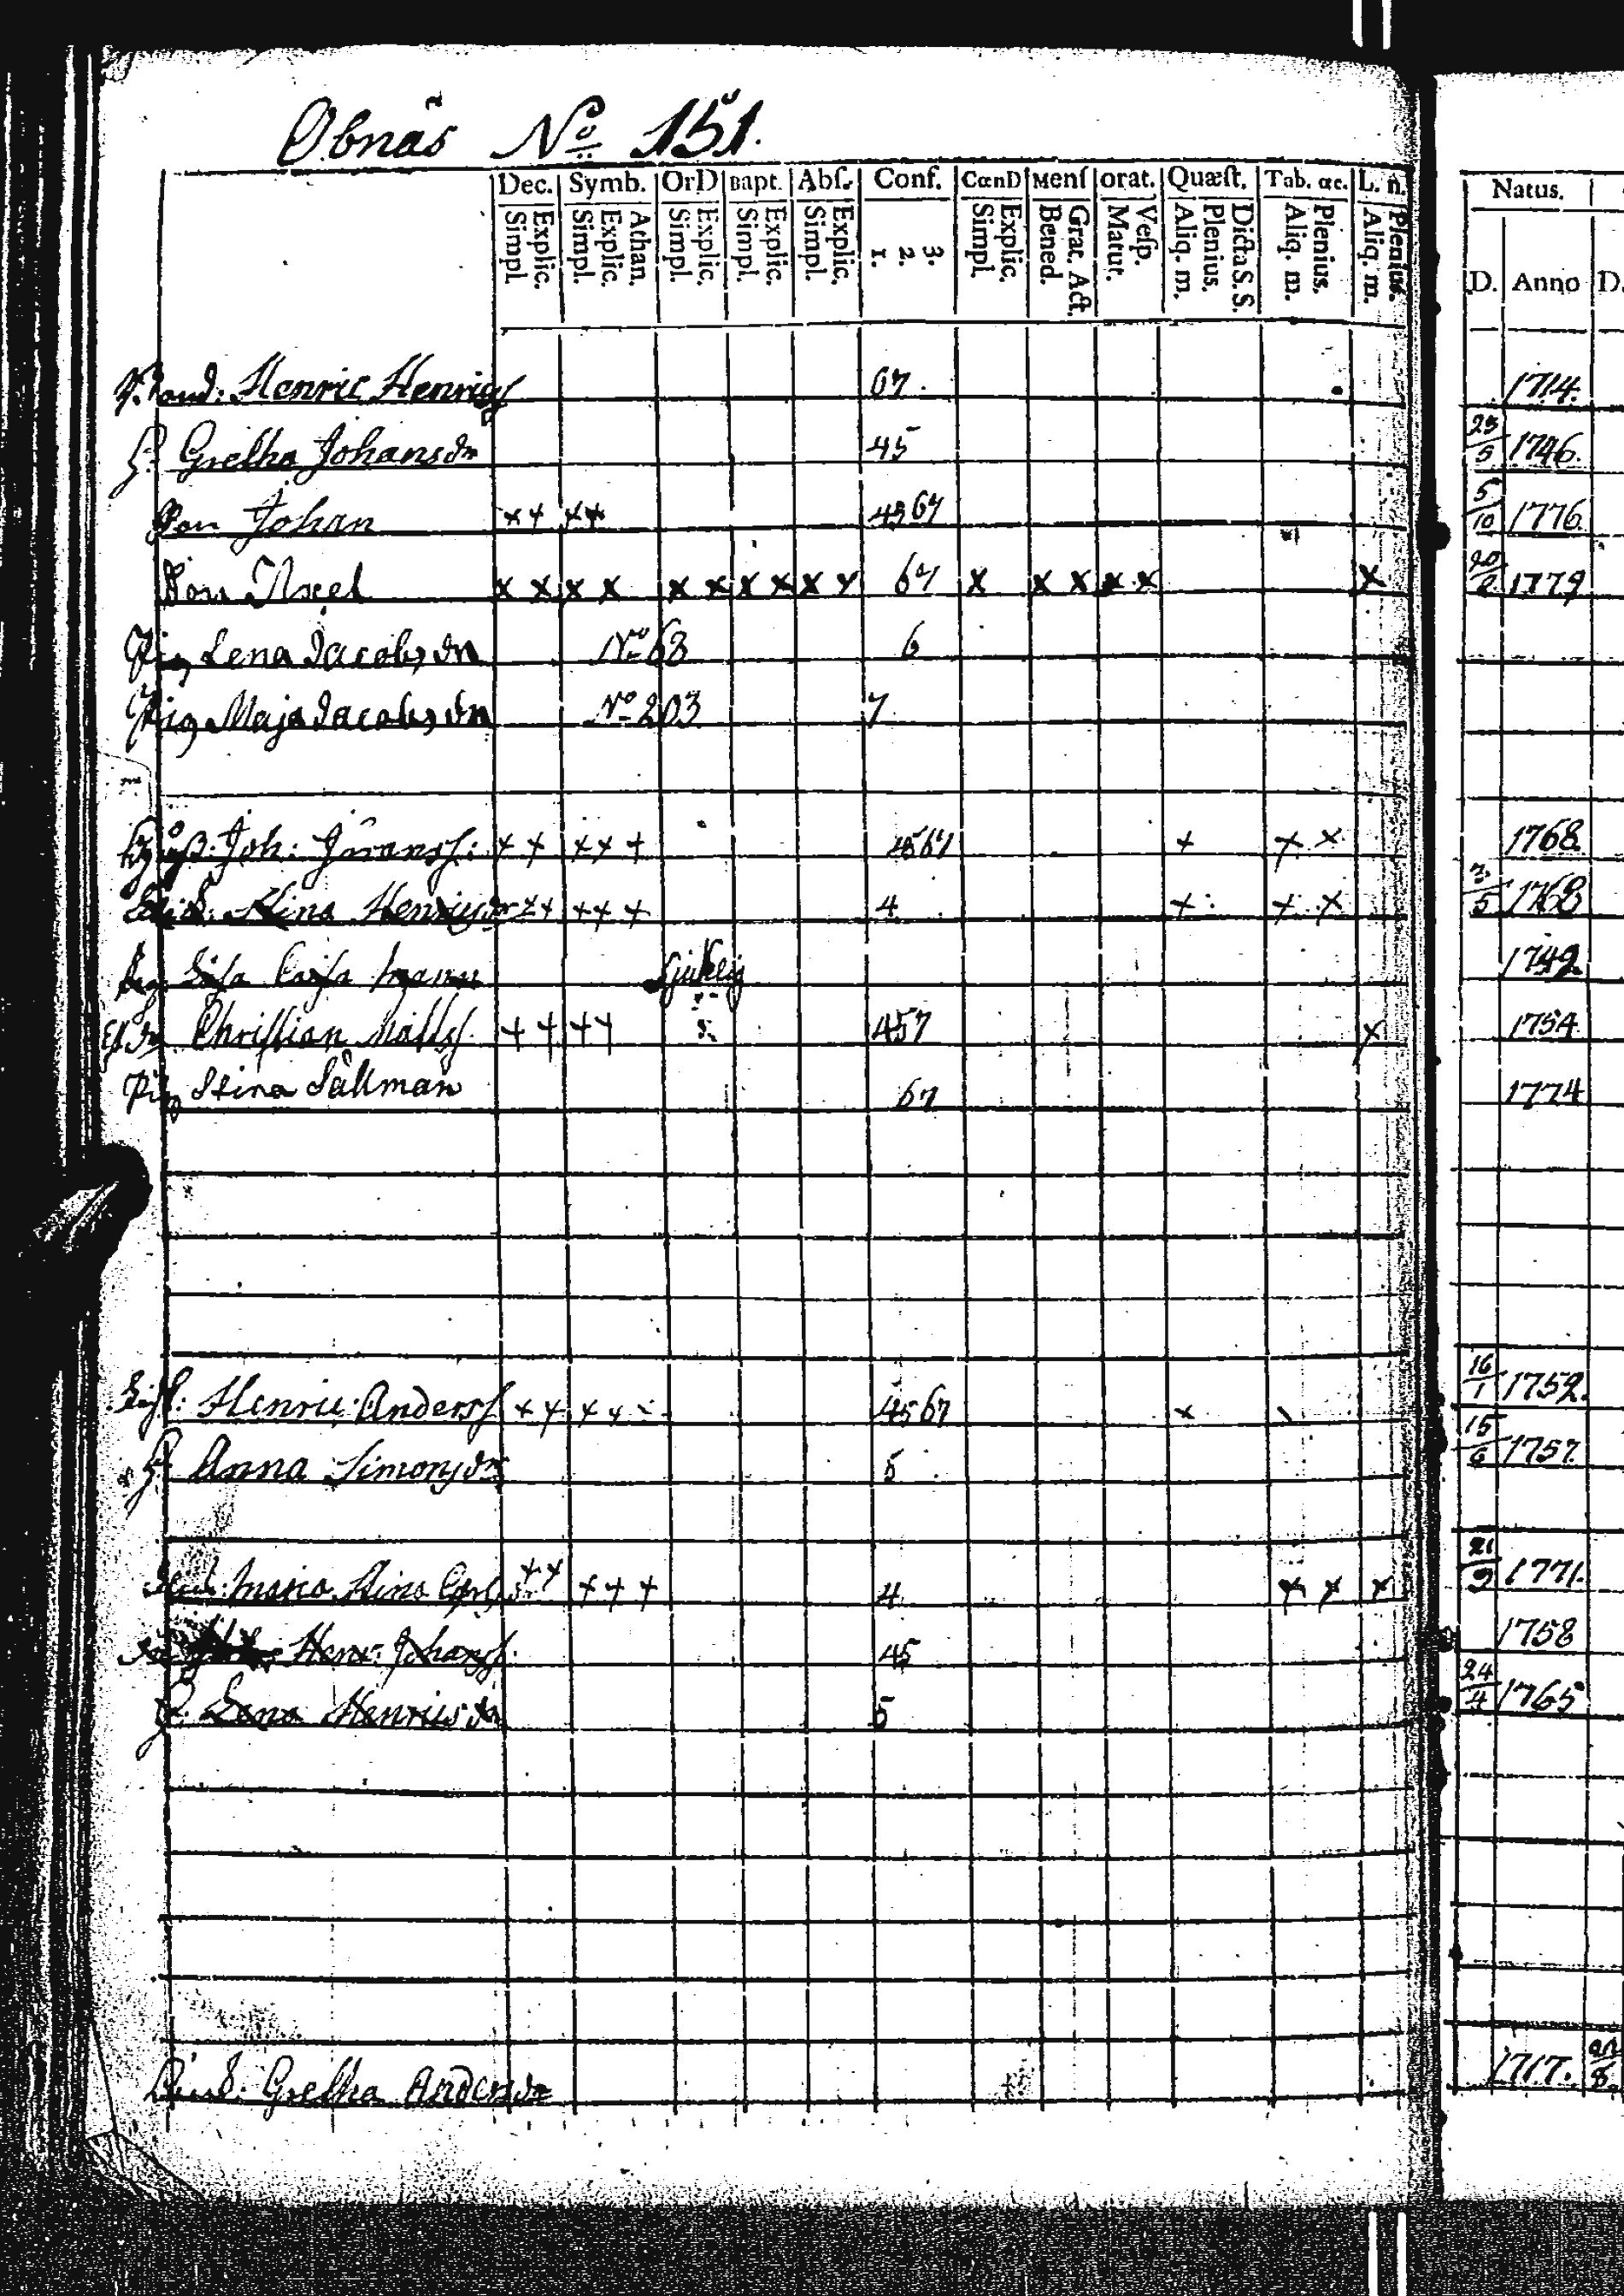 Obnäs No 151.
Dec. Symb. OrD Bapt. Abſ. Conf. CœnD Menſ orat. Quæſt. Tab. œc. L. n. Natus.
Simpl Explic. Simpl. Explic. Athan. Simpl. Explic. Simpl. Explic. Simpl. Explic. 1. 2. 3. Simpl. Explic. Bened. Grat. Act. Matut. Veſp. Aliq. m. Plenius. Dicta S. S. Aliq. m. Plenius. Aliq. m. Plenius. D. Anno D.
Henric Henrics 67. 1714.
H. Gretha Johansdr 45 23/5 1746.
Son Johan x+ x+ 4567 5/10 1776
Son Axel x x x x x x x x x x 67 x x x x x x 20/2 1779
Pig Lena Jacobsdr No 63 6
Pig Maja Jacobsdr No 203 7
Joh: Göransſ: + + + + + 4567 + + x 1768.
Stina Henricsdr + + + + + 4 + + x 3/5 1768
Lisa Cajsa Sjuklig 1749.
Christian Matts + + + + 457 x 1754
Pig Stina Sällman 67 1774
Henric Andersſ + + + + - 4567 x 16/1 1752.
H. Anna Simonsdr 5 15/6 1757.
Maria Stina + + + + + 4 x x x 21/9 1771.
Henr: Johansſ. 45 1758
H. Lena Henricsdr 5 24/4 1765
Gretha Andersdr 1717.